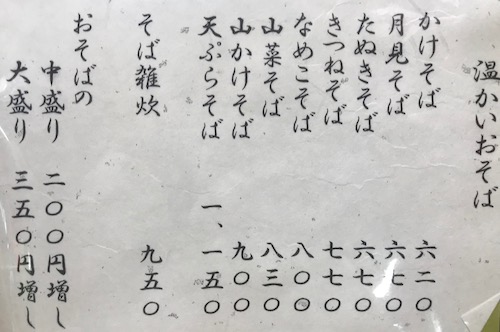 温かいおそば
かけそば 六二〇
月見そば 六七〇
たぬきそば 六七〇
きつねそば 七七〇
なめこそば 八〇〇
山菜そば 八三〇
山かけそば 九〇〇
天ぷらそば 一、一五〇
そば雑炊 九五〇
おそばの
中盛り 二〇〇円増し
大盛り 三五〇円増し